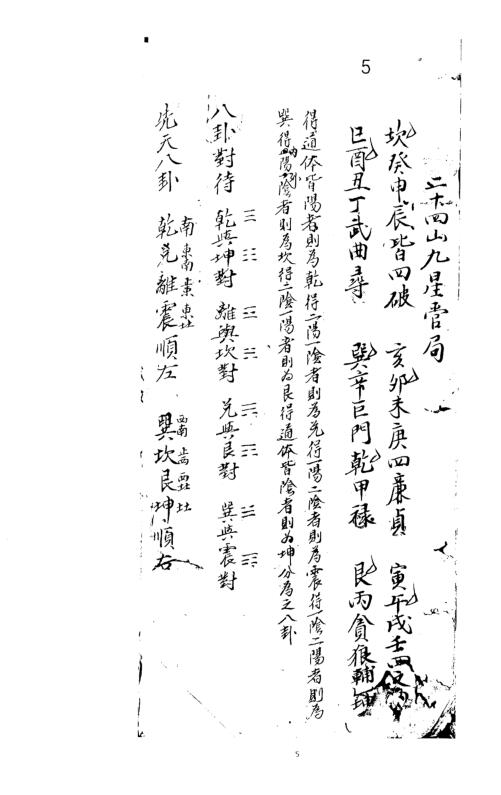 5
二十四山九星管局
坎癸申辰皆四破 亥卯未庚四廉貞 寅午戌壬四
巳酉丑丁武曲尋 巽辛巨門乾甲祿 艮丙貪狼輔
得道体皆陽者則為乾得二陽一陰者則為兌得一陽二陰者則為震得一陰二陽者則為
巽得陽陰者則為坎得二陰一陽者則為艮得道体皆陰者則为坤分為之八卦
八卦對待 乾與坤對 離與坎對 兌與艮對 巽與震對
先天八卦 乾兌離震順左 巽坎艮坤順右
南 東南 東 東北 西南 西 西北 北
5